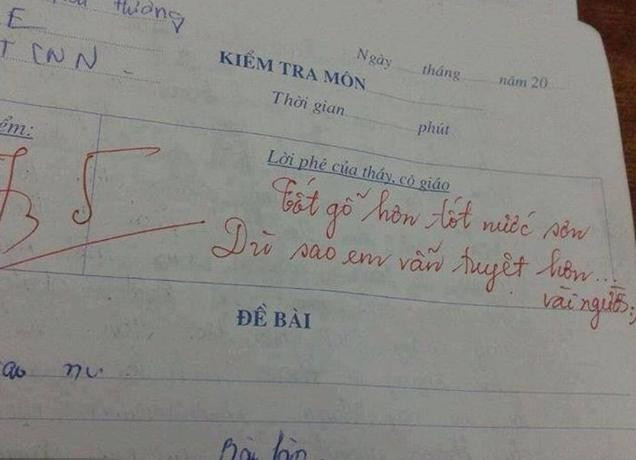 thương
E
T CNN
Ngày tháng năm 20
KIỂM TRA MÔN
Thời gian phút
ểm:
Lời phê của thầy, cô giáo
5
Tốt gỗ hơn tốt nước sơn
Dù sao em vẫn tuyệt hơn...
vài người :)
ĐỀ BÀI
Bài làm